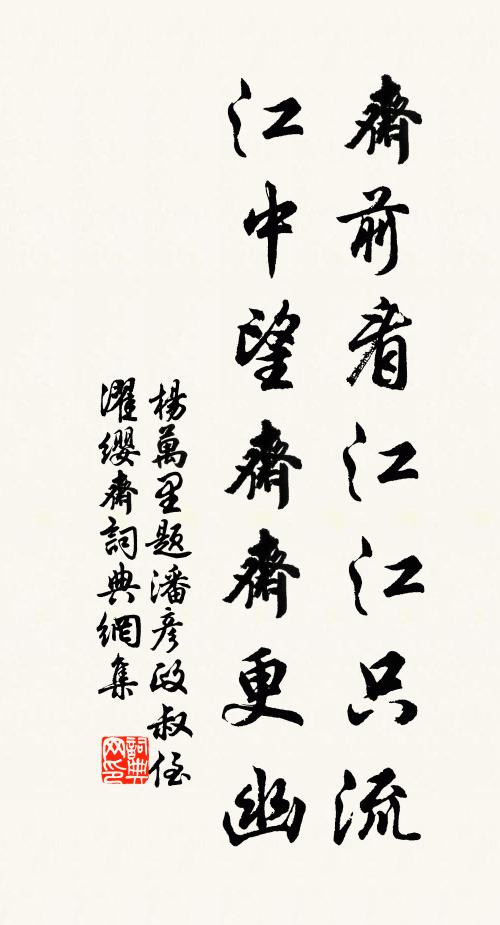 齋前看江江只流
江中望齋齋更幽
楊萬里題潘彥政叔侄
濯纓齋詞典網集
詞典
网印